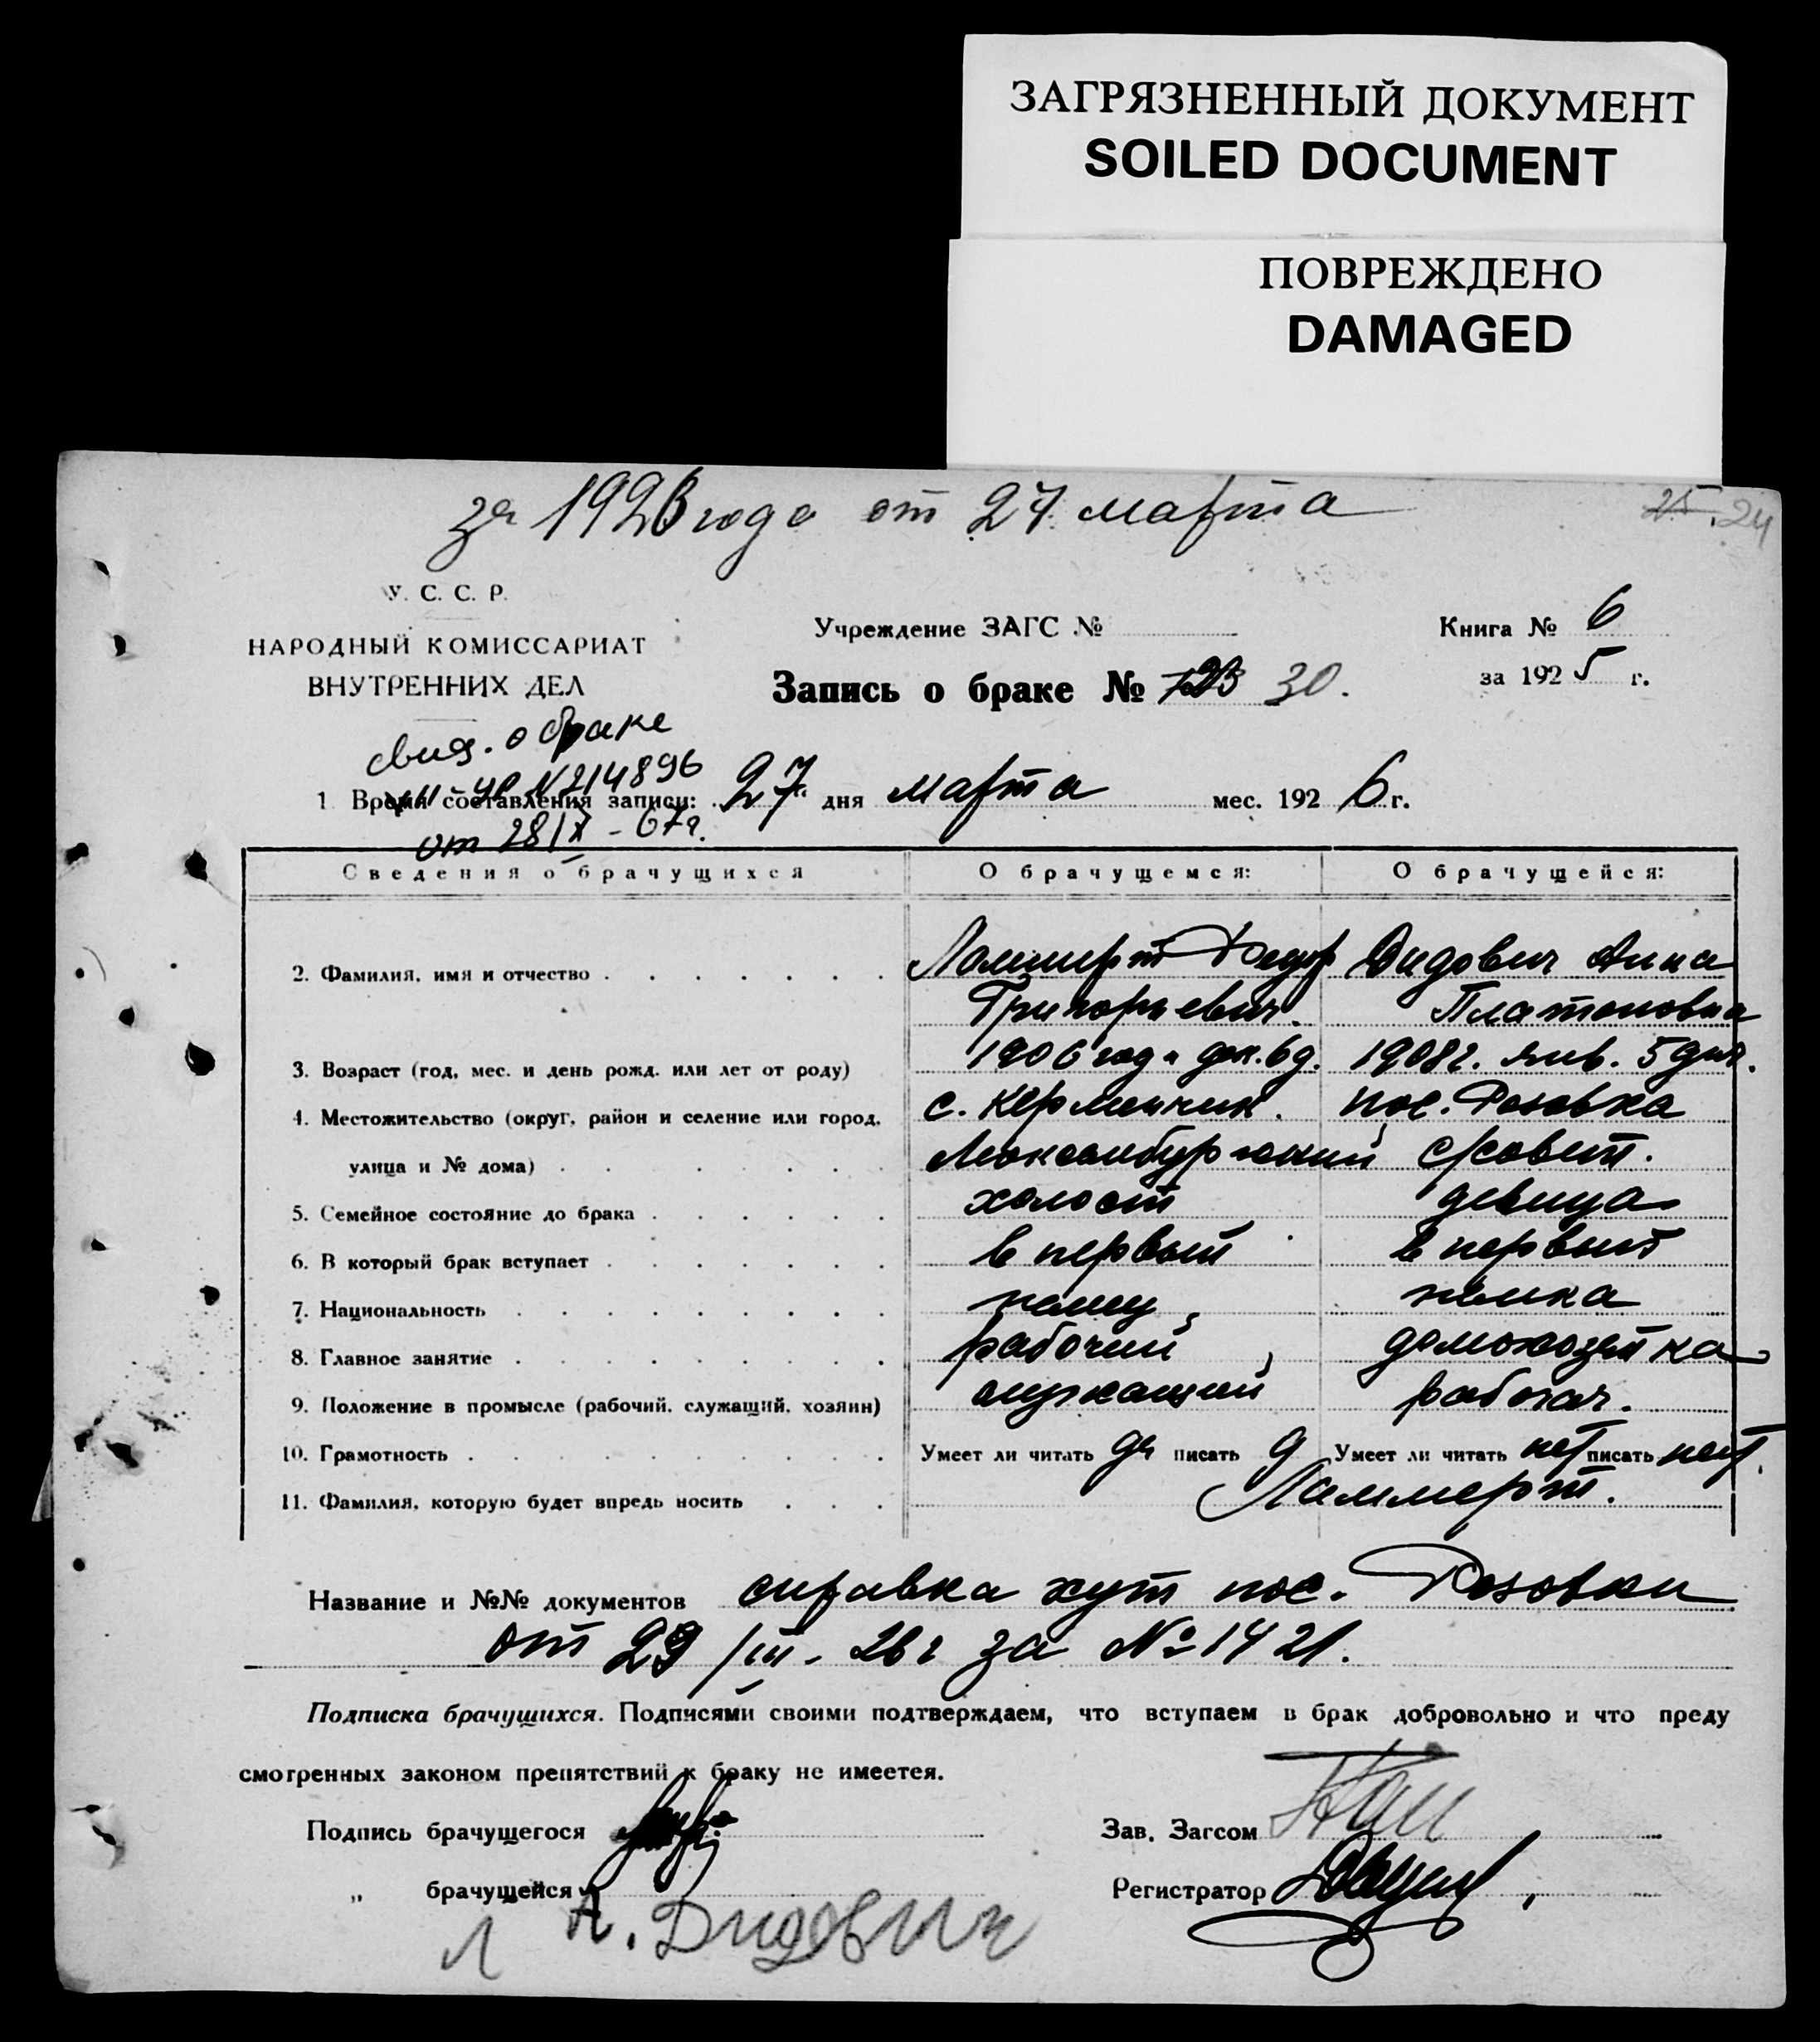 ЗАГРЯЗНЕННЫЙ ДОКУМЕНТ
SOILED DOCUMENT
ПОВРЕЖДЕНО
DAMAGED
за 1926 года от 27 марта
25. 24
У. С. С. Р.
НАРОДНЫЙ КОМИССАРИАТ
ВНУТРЕННИХ ДЕЛ
Учреждение ЗАГС №
Книга № 6
Запись о браке № 123 30.
за 1925 г.
свид. о браке
№ 214896
от 28/IX - 67г.
1 Время составления записи: 27 " дня марта мес. 1926 г.
Сведения о брачущихся О брачущемся: О брачущейся:
2. Фамилия, имя и отчество Ламмерт Федор Дидович Анна
Григорьевич. Платоновна
3. Возраст (год, мес. и день рожд. или лет от роду) 1906 год а дек. 6 д. 1908 г. янв. 5 дня.
4. Местожительство (округ, район и селение или город, с. Керменчик. пос. Розовка
улица и № дома) Люксембургский с/совет.
5. Семейное состояние до брака холост девица
6. В который брак вступает в первый в первый
7. Национальность немец немка
8. Главное занятие рабочий домохозяйка
9. Положение в промысле (рабочий, служащий, хозяин) служащий рабочая.
10. Грамотность Умеет ли читать да писать д Умеет ли читать нет писать нет.
11. Фамилия, которую будет впредь носить Ламмерт.
Название и №№ документов справка хут пос. Розовки
от 29/III - 26 г за № 1421.
Подписка брачущихся. Подписями своими подтверждаем, что вступаем в брак добровольно и что преду
смотренных законом препятствий к браку не имеется.
Подпись брачущегося
Зав. Загсом
" брачущейся
Регистратор
А. Дидович